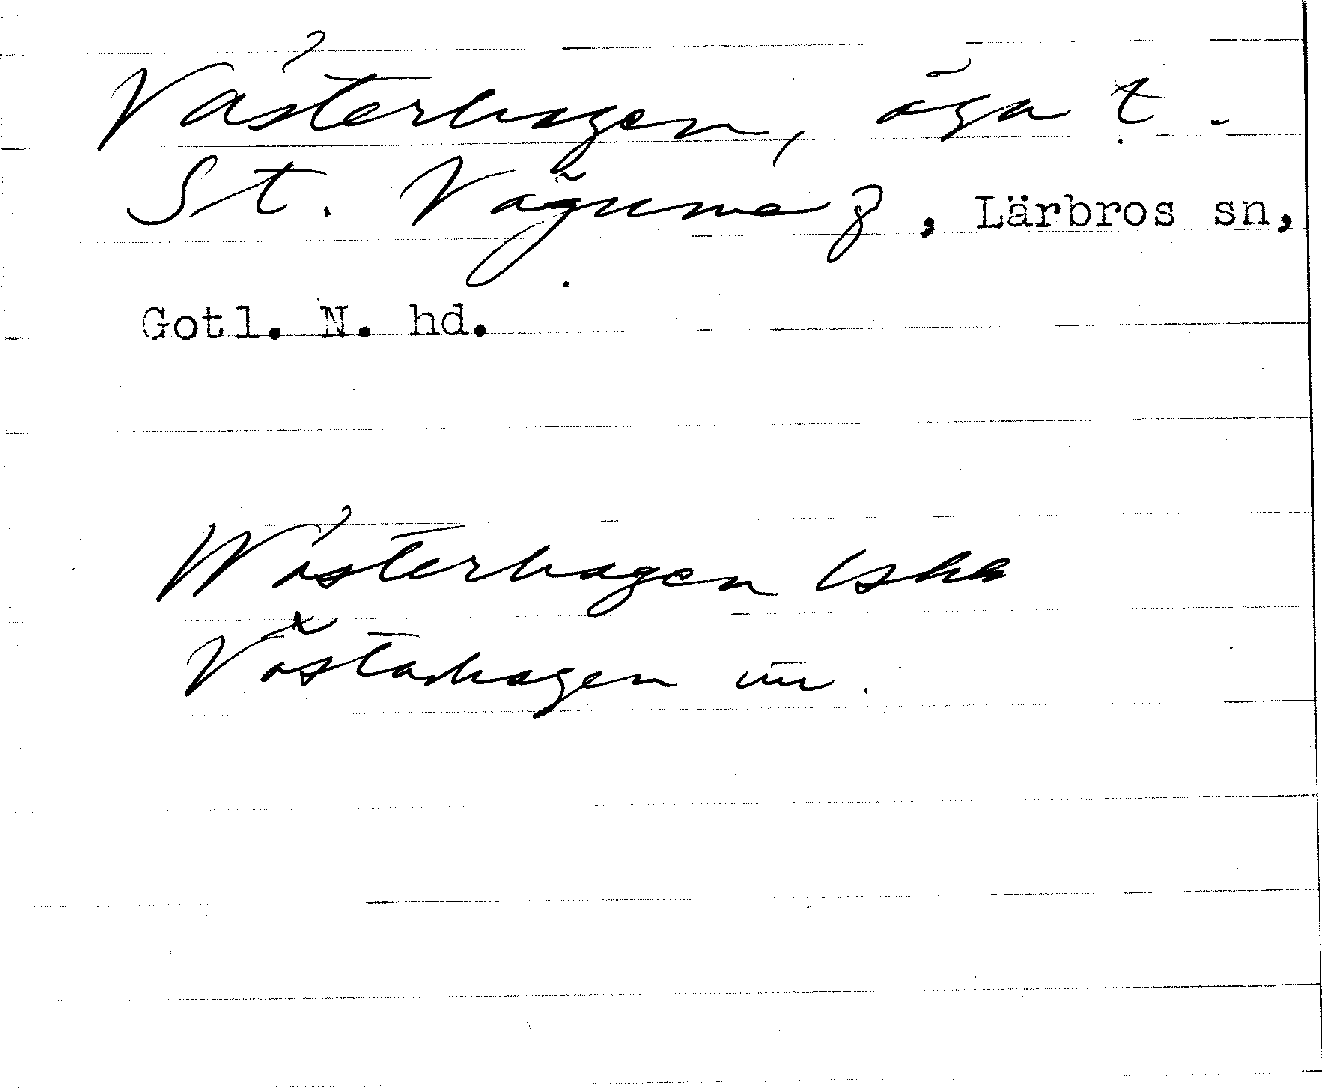 Västerhagen, äga t.
St. Vägume 8, Lärbros sn,
Gotl. N. hd.
Wästerhagen lska
Västarhagen un.